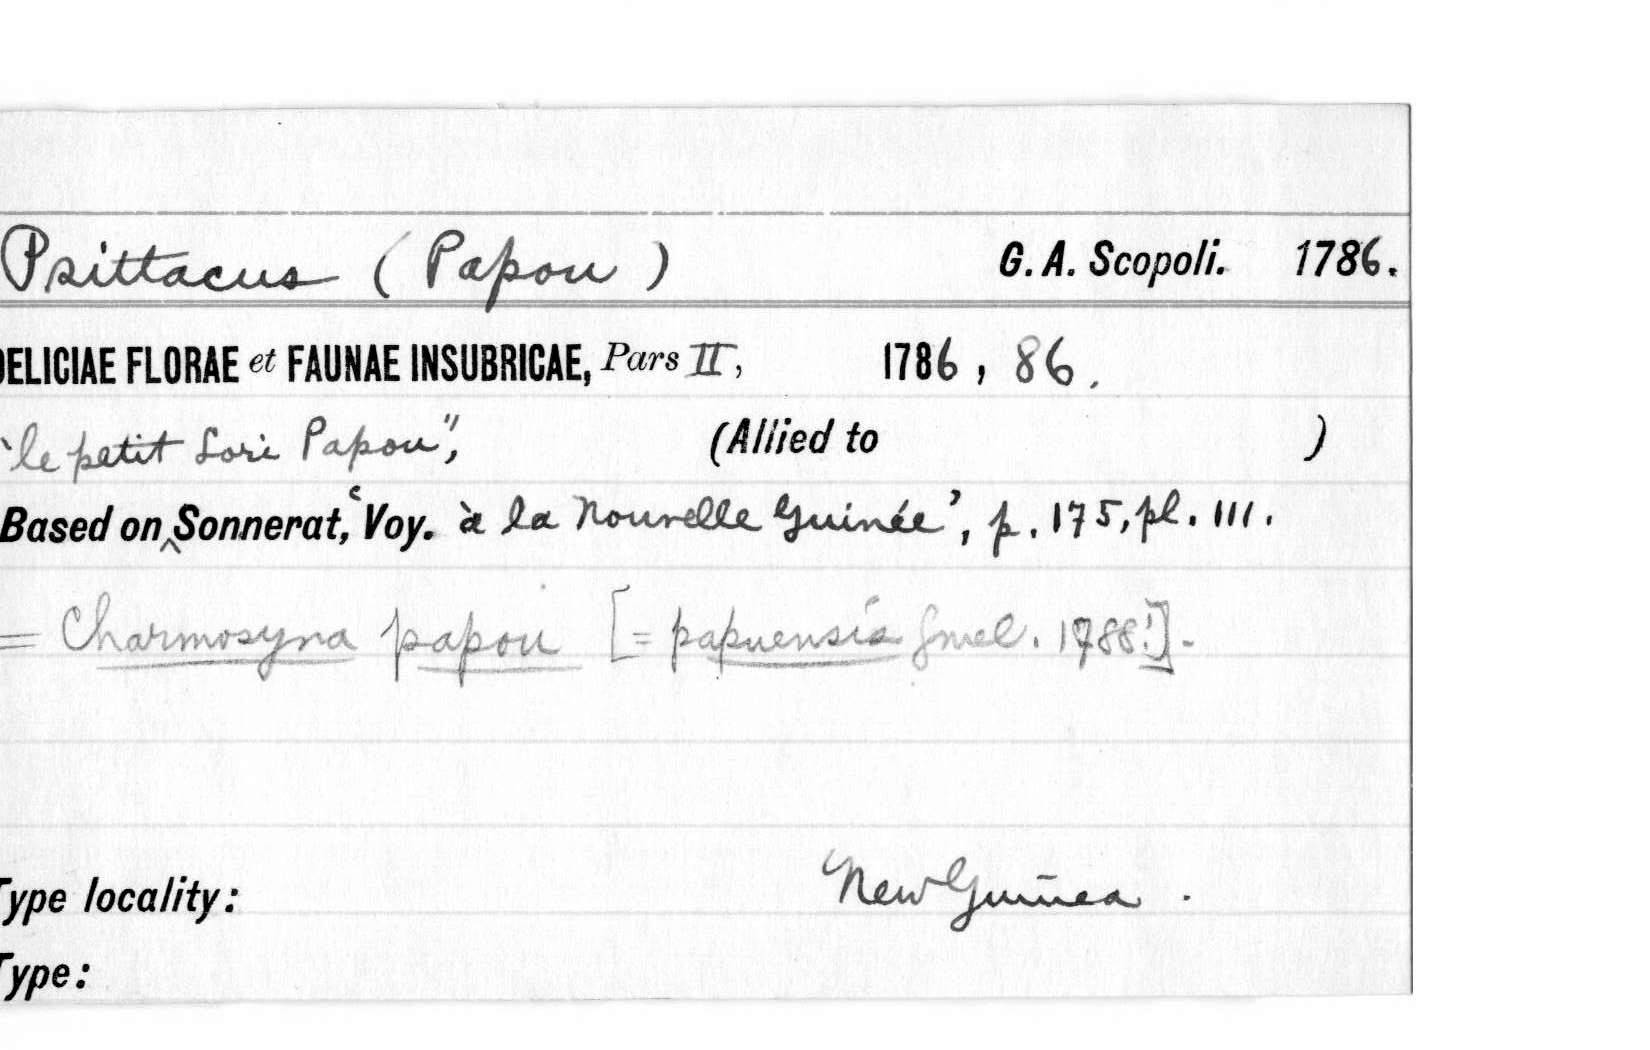 Psittacus (Papou) G. A. Scopoli. 1786.
DELICIAE FLORAE et FAUNAE INSUBRICAE, Pars II, 1786, 86.
"le petit Lori Papou", (Allied to )
Based on ‸ Sonnerat, ‘Voy. à la Nouvelle Guinée’, p. 175, pl. 111.
= Charmosyna papou [= papuensis Gmel. 1788!].
Type locality: New Guinea.
Type: